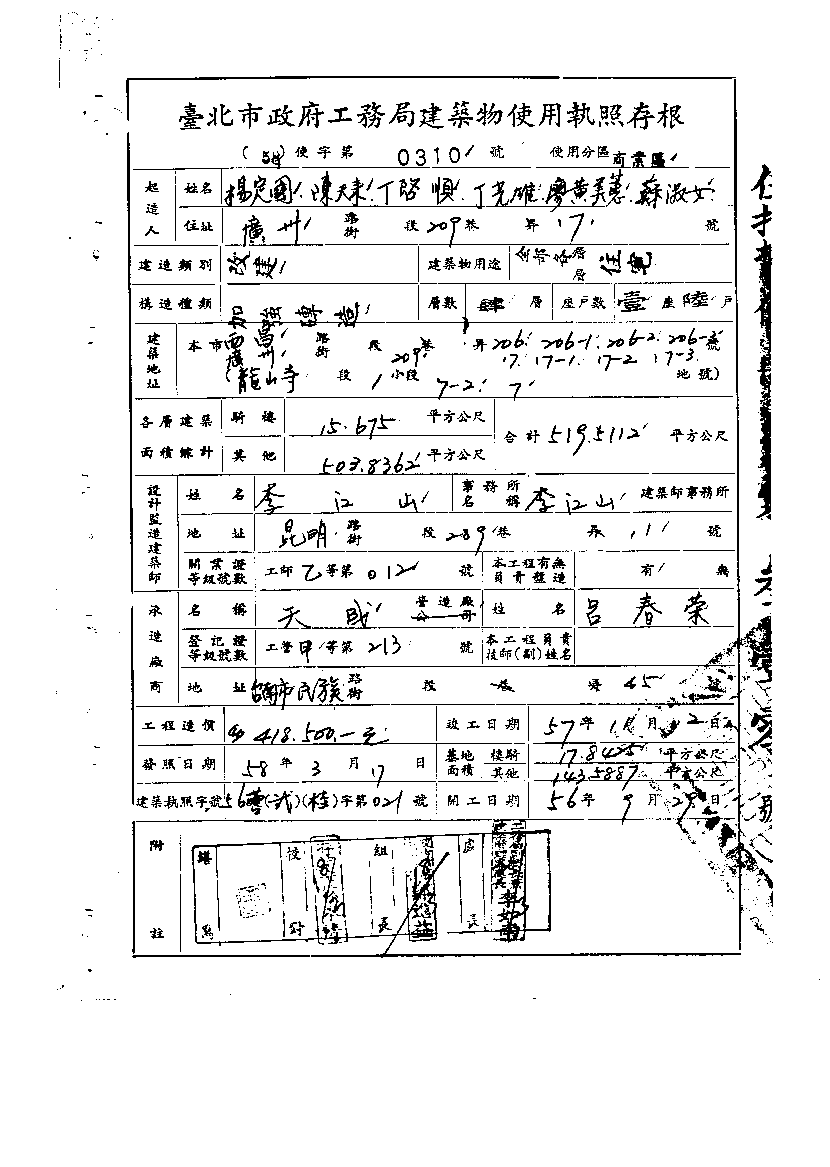 臺北市政府工務局建築物使用執照存根
(58)使字第 0310 號 使用分區 商業區
起造人 姓名 楊定國 陳天來 丁啓順 丁光雄 廖黃美蕙 蘇淑女
住址 廣州 路街 段 209 巷 弄 17 號
建造類別 改建 建築物用途 各層 住宅
構造種類 加強磚造 層數 肆 層 座戶數 壹 座 陸 戶
建築地址 本市 西昌 路街 段 巷 弄 206 206-1 206-2 206-3 號
廣州 209 17 17-1 17-2 17-3
(龍山寺 段 1 小段 7-2 7 地號)
各層建築面積總計 騎樓 15.675 平方公尺 合計 519.5112 平方公尺
其他 503.8362 平方公尺
設計監造建築師 姓名 李江山 事務所名稱 李江山 建築師事務所
地址 昆明 路街 段 289 巷 弄 11 號
開業證等級號數 工師 乙 等第 012 號 本工程有無負責監造 有 無
承造廠商 名稱 天成 營造廠公司 姓名 呂春榮
登記證等級號數 工營 甲 等第 213 號 本工程負責技師(副)姓名
地址 台南市民族 路街 段 巷 弄 45 號
工程造價 418.500.-元 竣工日期 57 年 月 日
發照日期 58 年 3 月 17 日 基地面積 樓騎 17.8425 平方公尺
其他 143.5887 平方公尺
建築執照字號 56 營(一式)(桂)字第 021 號 開工日期 56 年 9 月 29 日
附註 繕寫 校對 組長 處長